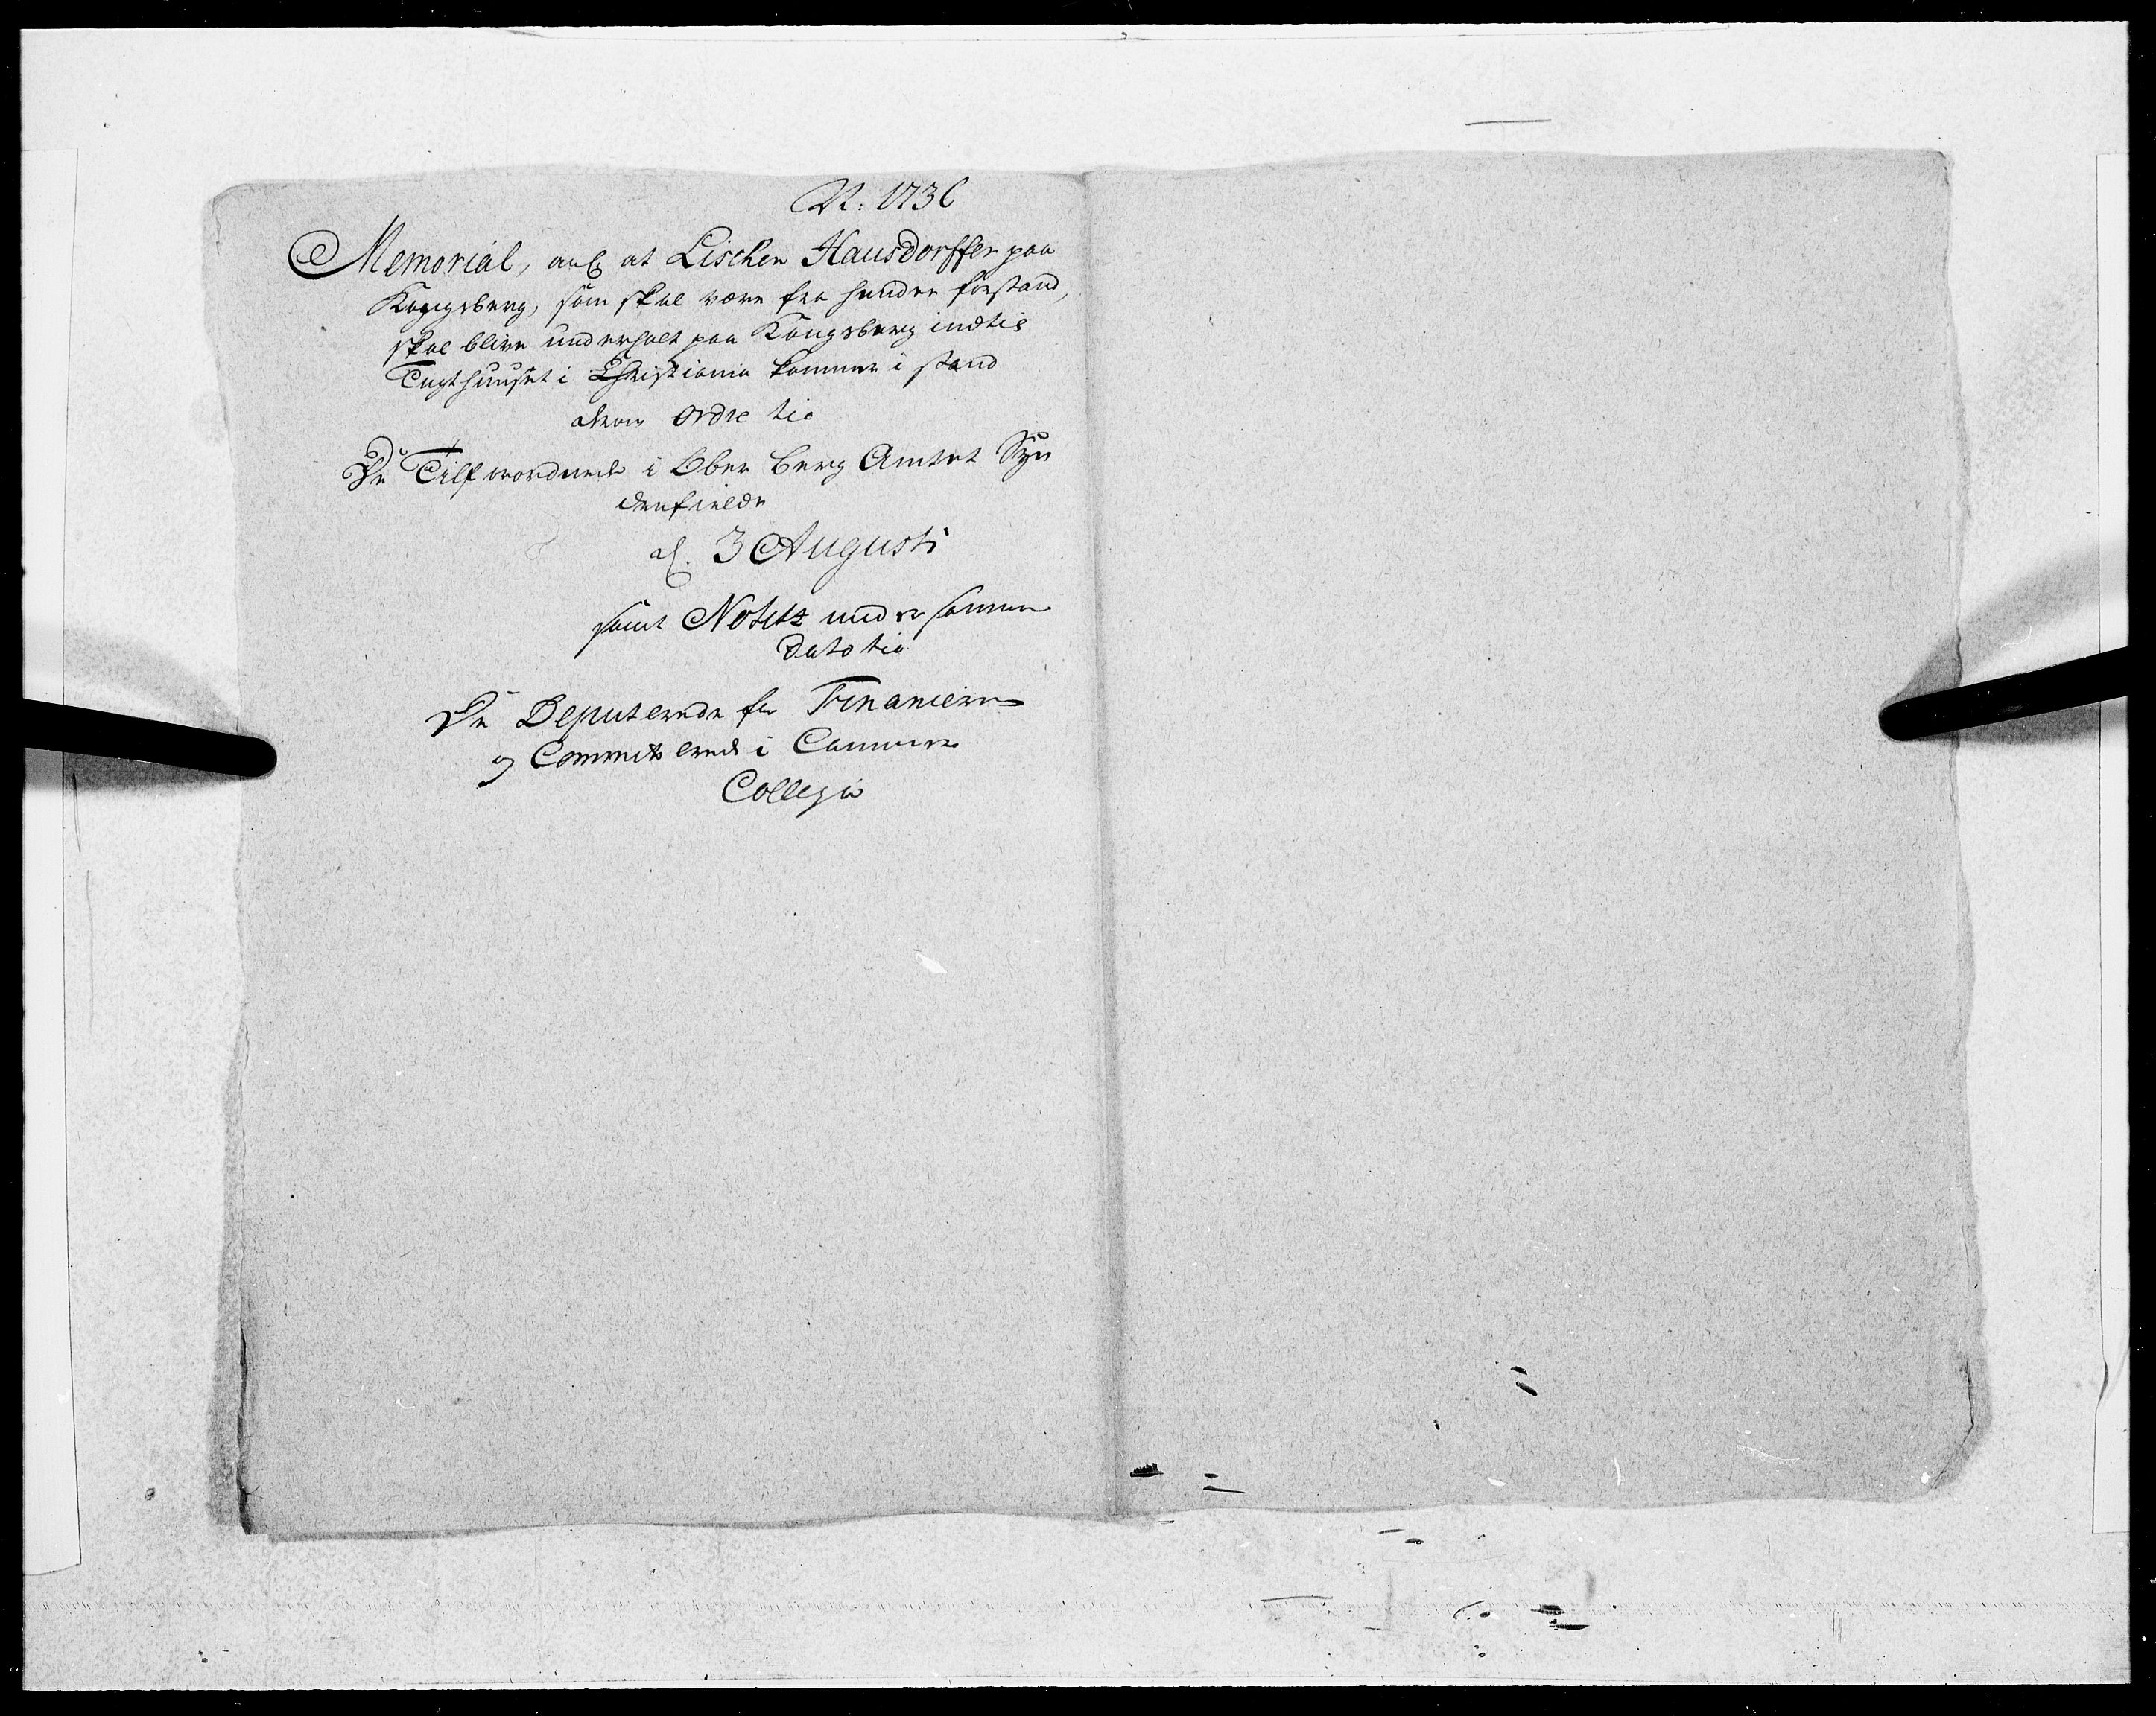 A<sup>o</sup>. 1736
Memorial, ang at Lischen Hausdorffer paa
Kongsberg, som skal være fra hendes forstand,
skal blive underholt paa Kongsberg indtil
Tugthuuset i Christiania kommer i stand
Ordre til
De Tilforordnede i Ober Berg Amtet Syn
denfields
af 3 Augusti
samt Notitz under samme
dato til
De Deputerede for Financerne
og Committerede i Cammer
Collegio